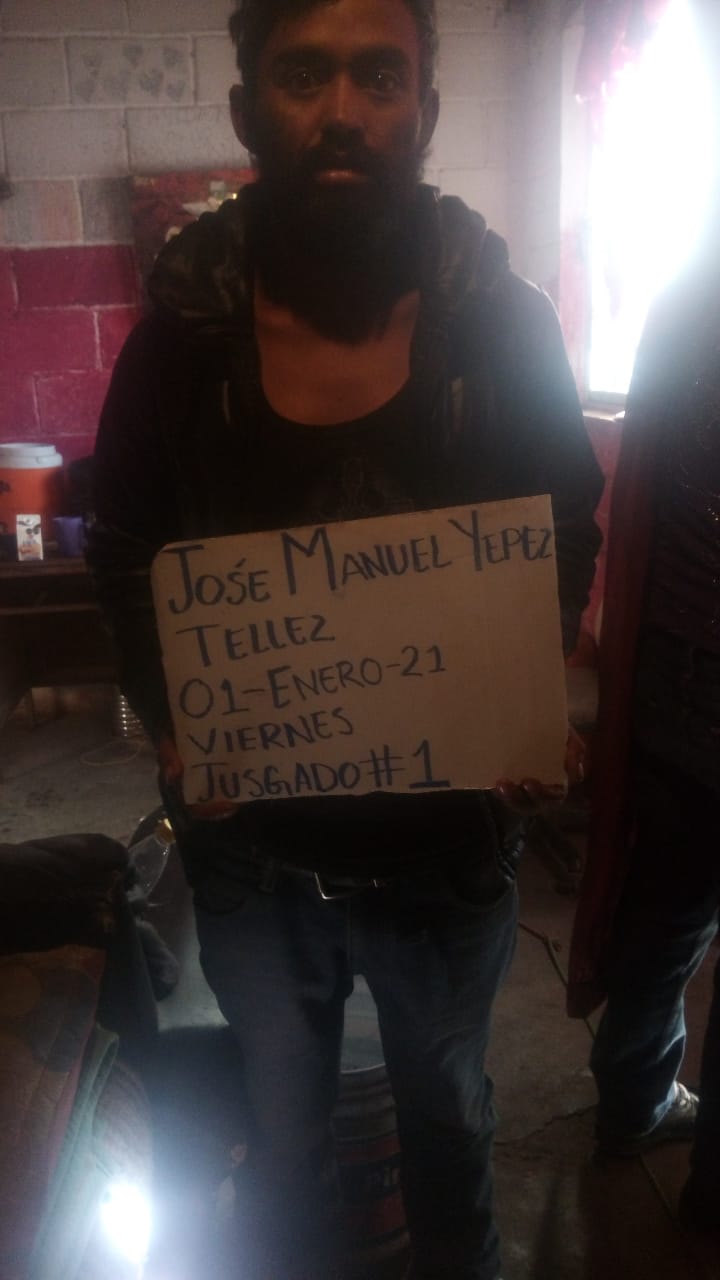 JOSE MANUEL YEPEZ
TELLEZ
01-ENERO-21
VIERNES
JUSGADO #1